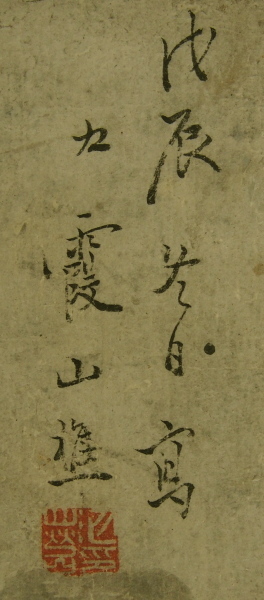 戊辰日寫
九霞山樵